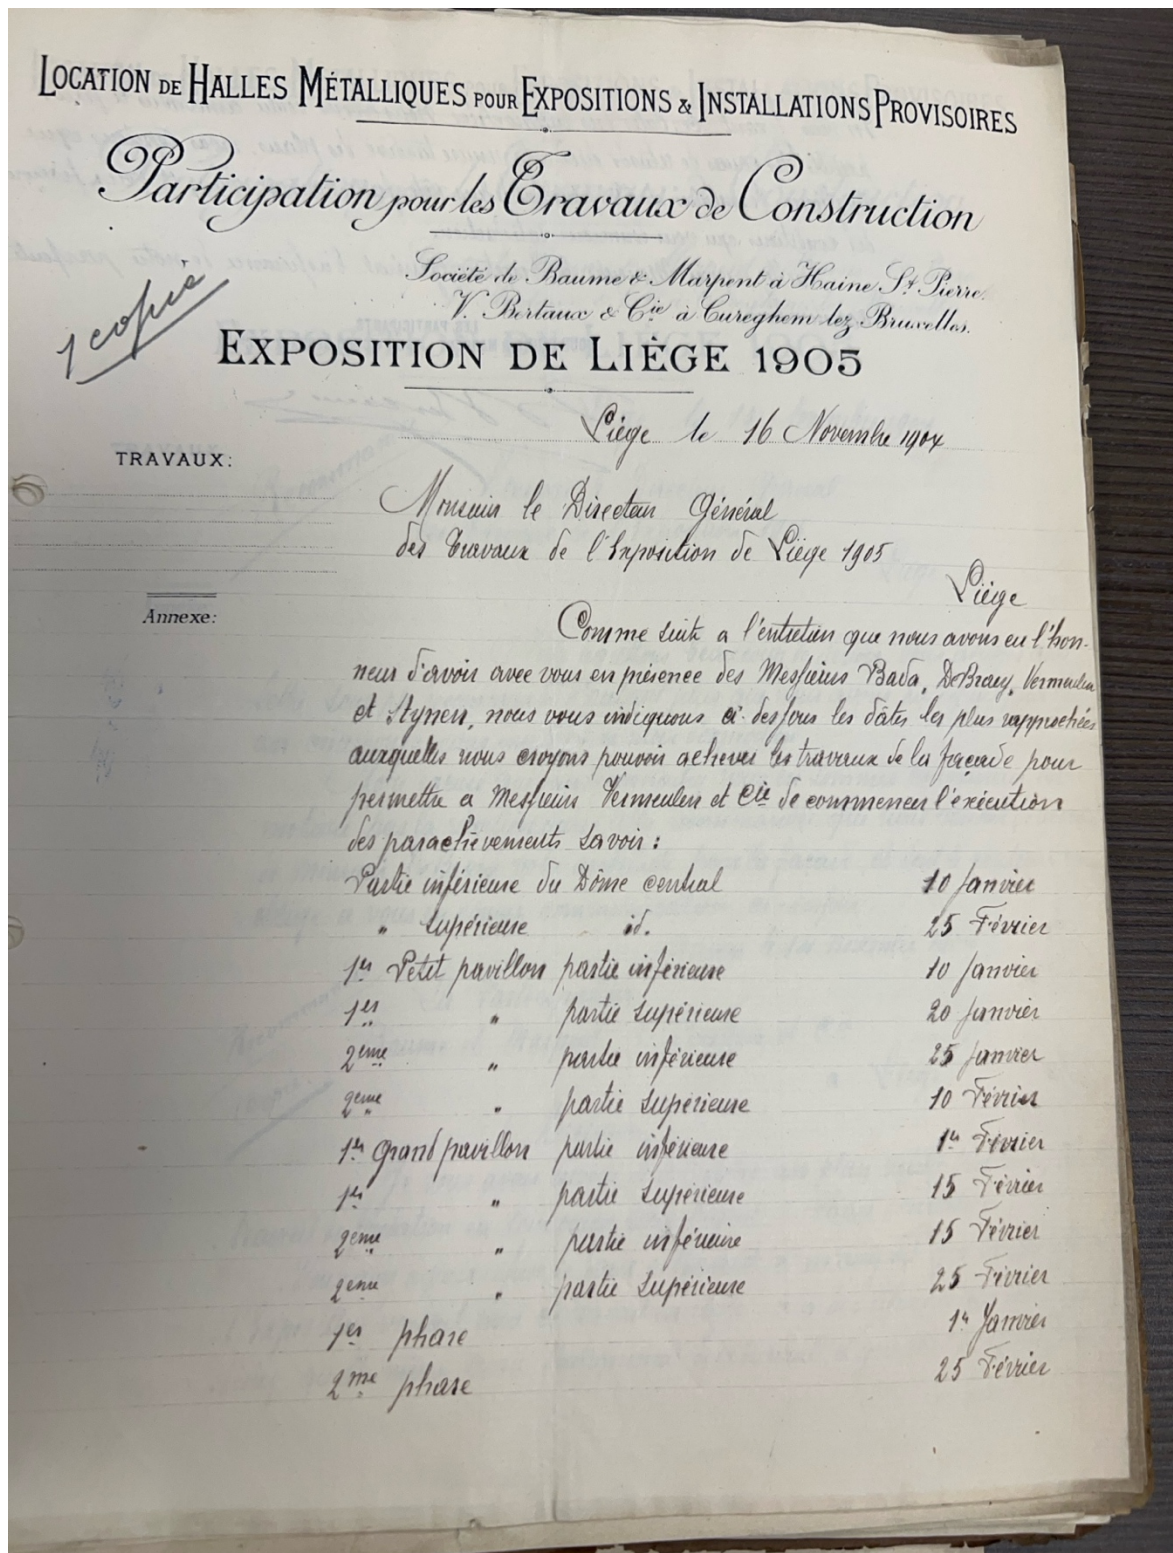 LOCATION DE HALLES MÉTALLIQUES POUR EXPOSITIONS & INSTALLATIONS PROVISOIRES
Participation pour les Travaux de Construction
Société de Baume & Marpent à Haine St Pierre.
V. Bertaux & Cie à Cureghem lez Bruxelles.
1 copie
EXPOSITION DE LIÈGE 1905
Liège le 16 Novembre 1904
TRAVAUX:
Monsieur le Directeur Général
des Travaux de l'Exposition de Liège 1905
Liège
Annexe:
Comme suite a l'entretien que nous avons eu l'hon-
neur d'avoir avec vous en présence des Messieurs Bada, DeBraey, Vermeulen
et Stynen, nous vous indiquons ci-dessous les dâtes les plus rapprochées
auxquelles nous croyons pouvoir achever les travaux de la façade pour
permettre a Messieurs Vermeulen et Cie de commencer l'exécution
des parachèvements savoir :
Partie inférieure du Dôme central 10 Janvier
" supérieure id. 25 Février
1er Petit pavillon partie inférieure 10 Janvier
1er " partie supérieure 20 Janvier
2eme " partie inférieure 25 Janvier
2eme " partie supérieure 10 Février
1er Grand pavillon partie inférieure 1er Février
1er " partie supérieure 15 Février
2eme " partie inférieure 15 Février
2eme " partie supérieure 25 Février
1er phase 1er Janvier
2me phase 25 Février